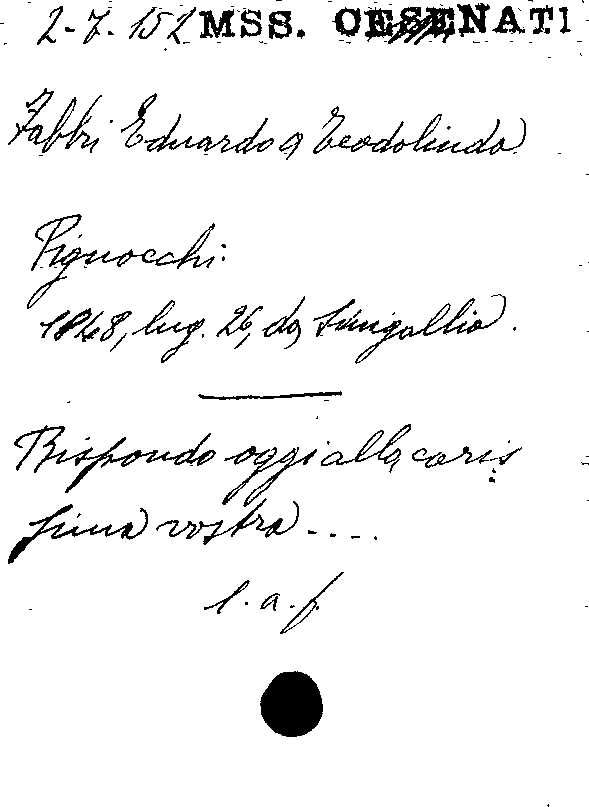 2-7. 152 MSS. CESENATI
Fabbri Eduardo a Teodolinda
Pignocchi:
1848, lug. 26, da Sinigallia.
Rispondo oggi alla caris
sima vostra ....
l. a. f.